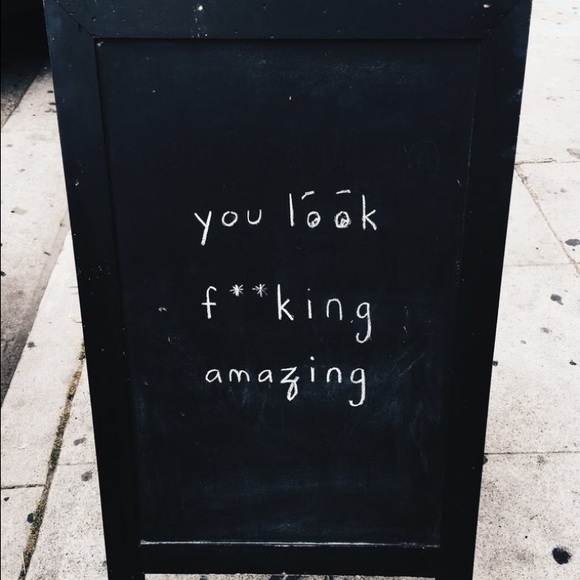 you look
f**king
amazing